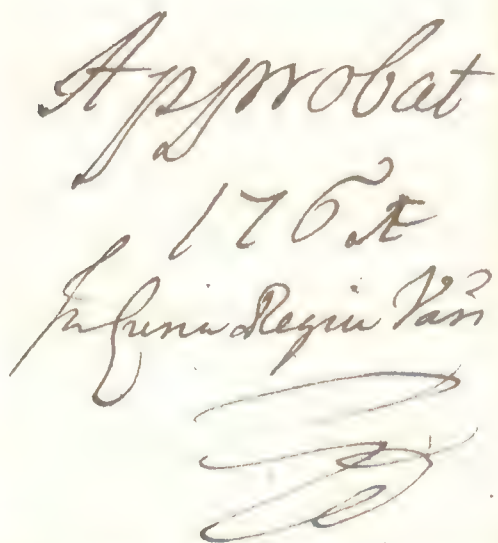 Approbat
176
In Curia Regia Vars